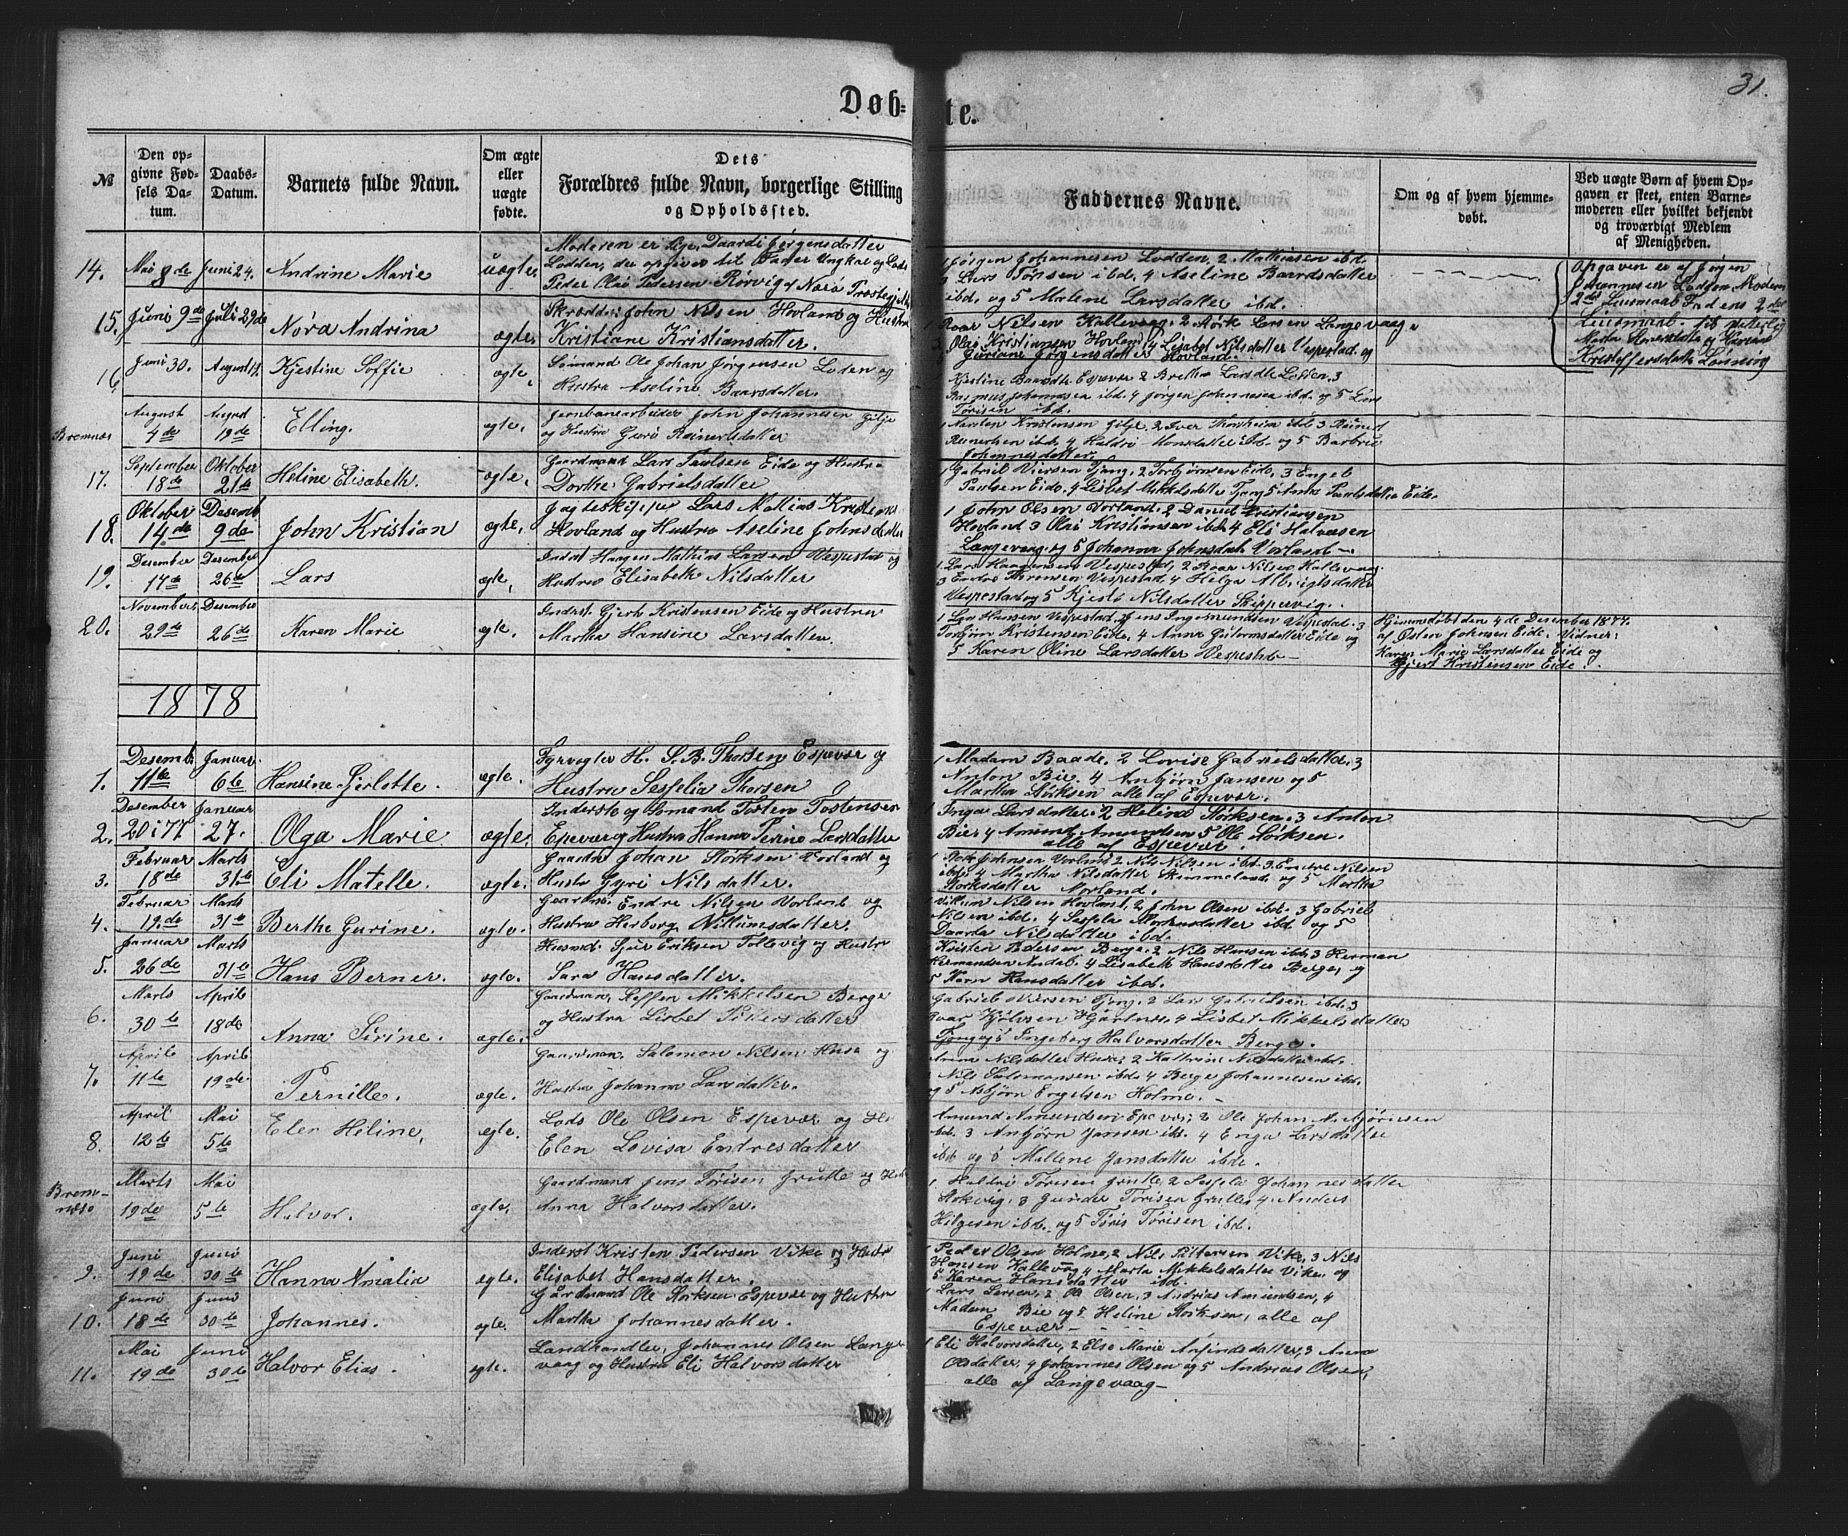 31.
Døb-
te.
№
Den op-
givne Fød-
sels Da-
tum.
Daabs-
Datum.
Barnets fulde Navn.
Om ægte
eller
uægte
fødte.
Dets
Forældres fulde Navn, borgerlige Stilling
og Opholdssted.
Faddernes Navne.
Om og af hvem hjemme-
døbt.
Ved uægte Børn af hvem Op-
gaven er skeet, enten Barne-
moderen eller hvilket bekjendt
og troværdigt Medlem
af Menigheden.
14.
Mai 8de
Juni 24.
Andrine Marie
uægte.
Moderen er Pige, Daardi Jørgensdatter
Lodden, der opgiver til Fader Ungkar og Lods
Peder Olai Pedersen Rørvig af Nærø
1 Jørgen Johannesen Lodden, 2 Mathiasen ibd.
3 Lars Tørisen ibd. 4 Aseline Baardsdatter
ibd. og 5 Malene Larsdatter ibd.
Opgaven er af Jørgen
Johannesen Lodden Modern
2det Leiermaal
Leiermaal
15.
Juni 9de
Juli 29de
Nora Andrina
ægte.
Skrædder John Nilsen Hovland og Hustru
Kristiane Kristiansdatter.
1 Roar Nilsen Kallevaag, 2 Størk Larsen Langevaag
3 Olai Kristiansen Hovland, 4 Lisabet Nilsdatter Vespestad og
Guriane Jørgensdatter Hovland.
16.
Juni 30.
August 19.
Kjestine Soffie
ægte.
Sømand Ole Johan Jørgensen Loden og
Hustru Aseline Baarsdatter.
Kjestine Baardsdt. Espevær 2 Brethe Larsdt. Lodden, 3
Rasmus Johannesen ibd. 4 Jørgen Johannesen ibd. og 5 Lars
Tørisen ibd.
Bremnæs
August
4de
August
19de
Elling.
ægte.
Jernbanearbeider John Johannesen Gilje
og Hustru Guro Reinertsdatter
1 Karsten Kristensen Gilje, 2 Iver Thorsheim ibd. 3 Reinert
Reinertsen ibd. 4 Haldri Monsdatter ibd. og 5 Barbru
Johannesdatter.
17.
September
18de
Oktober
21de
Heline Elisabeth.
ægte.
Gaardmand Lars Paulsen Eide og Hustru
Dorthe Gabrielsdatter
1 Gabriel Viersen Tjong, 2 Torbjørnsen Eide, 3 Engel
Paulsen Eide, 4 Lisbet Mikkelsdatter Tjong 5 Anna Paulsdatter Eide.
18.
Oktober
14de
Desemb
9de
John Kristian
ægte.
Jagteskipper Lars Mathias Kristians
Hovland og Hustru Aseline Johnsdatter
1 John Olsen Vorland, 2 Daniel Kristiansen
Hovland 3 Olai Kristiansen ibd. 4 Eli Halvasen
Langevaag og 5 Johanna Johnsdatt. Vorland.
19.
Desember
17de
Desember
26de
Lars
ægte.
Inderst Haagen Mathias Larsen Vespestad og
Hustru Elisabeth Nilsdatter
1 Lars Haagensen Vespestad, 2 Roar Nilsen Kallevaag.
3 Endre Thoresen Vespestad, 4 Helga Albrigtsdatter
Vespestad og 5 Kjesti Nilsdatter Skippevig.
20.
November
29de
Desember
26de
Karen Marie
ægte.
Inderst Gjert Kristensen Eide og Hustru
Martha Hansine Larsdatter.
1 Lars Hansen Vespestad, 2 Jens Ingemundsen Vespestad. 3
Torbjørn Kristensen Eide, 4 Anna Guttormsdatter Eide og
5 Karen Oline Larsdatter Vespestad.
Hjemmedøbt den 4de Desember 1877.
af Østen Johnsen Eide. Vidner:
Karen Marie Larsdatter Eide og
Gjert Kristensen Eide.
1878
1.
Desemb.
11te
Januar
6te
Hansine Gjerlotte.
ægte.
Fyrvogter H. S. B. Thorsen Espevær og
Hustru Sesselia Thorsen
1 Madam Baade, 2 Lovise Gabrielsdatter. 3
Anton Bie. 4 Anbjørn Jansen og 5
Martha Størksen alle af Espevær.
2.
Desember
20 i 77
Januar
27.
Olga Marie
ægte.
Inderste og Sømand Tosten Tostensen
Espevær og Hustru Hanna Serine Larsdatter
1 Inga Larsdatter. 2 Heline Størksen. 3 Anton
Bie. 4 Amund Amundsen 5 Ole Størksen.
alle af Espevær.
3.
Februar
18de
Marts
31te
Eli Matelle.
ægte.
Gaardm. Johan Størksen Vorland og
Hustru Gyri Nilsdatter.
1 Roar Johnsen Vorland 2 Nils Nilsen ibd. 3. Endre Nilsen
ibd. 4 Martha Nilsdatter Skimmeland og 5 Martha
Størksdatter Vorland.
4.
Februar
19.de
Marts
31te
Berthe Gurine.
ægte.
Gaardm. Endre Nilsen Vorland og
Hustru Herborg Villumsdatter.
1 Villum Nilsen Hovland, 2 John Olsen ibd. 3 Gabriel
Nilsen ibd. 4 Sesselia Mortensdatter ibd og 5
Daarda Nilsdatter ibd.
5.
Januar
26de
Marts
31te
Hans Berner.
ægte.
Husmd. Sjur Eriksen Tollevig og Hustru
Sara Hansdatter.
Krister Pedersen Berge, 2 Nils Hansen ibd. 3 Herman
Hermandsen Andal, 4 Lisabeth Hansdatter Berge, og
5 Karn Hansdatter ibd.
6.
Marts
30te
April
18de
Anna Sirine.
ægte.
Gaardman. Steffen Mikkelsen Berge
og Hustru Lisbet Pittersdatter
Gabriel Viersen Tjong, 2 Lars Gabrielsen ibd. 3
Ivar Kjølvsen Hjartnes, 4 Lisbet Mikkelsdatter
Tjong og 5 Ingeborg Halvorsdatter Berge.
7.
April
11te
April
19de
Pernille.
ægte.
Gaardman. Salomon Nilsen Huse og
Hustru Johanna Larsdatter.
Anna Nilsdatter Huse, 2 Kathrine Nilsdatter ibd.
Nils Salomonsen ibd. 4 Berge Johannesen ibd.
og 5 Asbjørn Engelsen Holme.
8.
April
12te
Mai
5te
Elen Heline,
ægte.
Lods Ole Olsen Espevær og H
Elen Lovisa Endresdatter
Amund Amundsen Espevær, 2 Ole Johan Anbjørnsen
ibd. 3 Anbjørn Jansen ibd. 4 Enga Larsdatter
ibd og 5 Mallene Jansdatter ibd.
Brem-
næs
Marts
19de
Mai
5te
Halvor.
ægte.
Gaardmand Jens Tørisen Grutle og Hus
Anna Halvorsdatter.
1 Haldri Tørisen Grutle, 2 Sesfela Johannesdatter
Stokvig, 3 Gunder Tørisen Grutle, 4 Anders
Helgesen ibd. og 5 Tøris Tørisen ibd.
9.
Juni
19de
Juni
30te
Hanna Amalia
ægte.
Inderst Kristen Pedersen Vike og Hustr
Elisabet Hansdatter.
1 Peder Olsen Holme, 2 Nils Pittersen Vike, 3 Nils
Hansen Kallevaag 4 Marta Mikkelsdatter Vike, og
5 Karen Hansdatter ibd.
10.
Juni
18de
Juni
30te
Johannes.
ægte.
Gaardmand Ole Størksen Espevær og Hustru
Martha Johannesdatter.
1 Lars Larsen, 2 Ole Olsen, 3 Andrias Amundsen, 4
Madam Bie og 5 Heline Størksen, alle af
Espevær
11.
Mai
19de
Juni
30te
Halvor Elias.
ægte.
Landhandler, Johannes Olsen Lange
vaag og Hustru Eli Halvorsdatter
1 Eli Halvorsdatter, 2 Else Marie Anfindsdatter, 3 Anna
Olsdatter, 4 Johannes Olsen og 5 Andreas Olsen,
alle af Langevaag